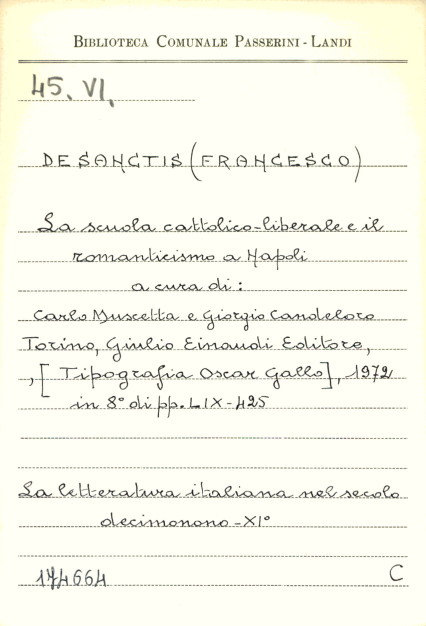 BIBLIOTECA COMUNALE PASSERINI-LANDI
45. VI.
DE SANCTIS (FRANCESCO)
La scuola cattolico-liberale e il
romanticismo a Napoli
a cura di:
Carlo Muscetta e Giorgio Candeloro
Torino, Giulio Einaudi Editore,
, [Tipografia Oscar Gallo], 1972
in 8° di pp. LIX-425
La letteratura italiana nel secolo
decimonono -XI°
174664 C